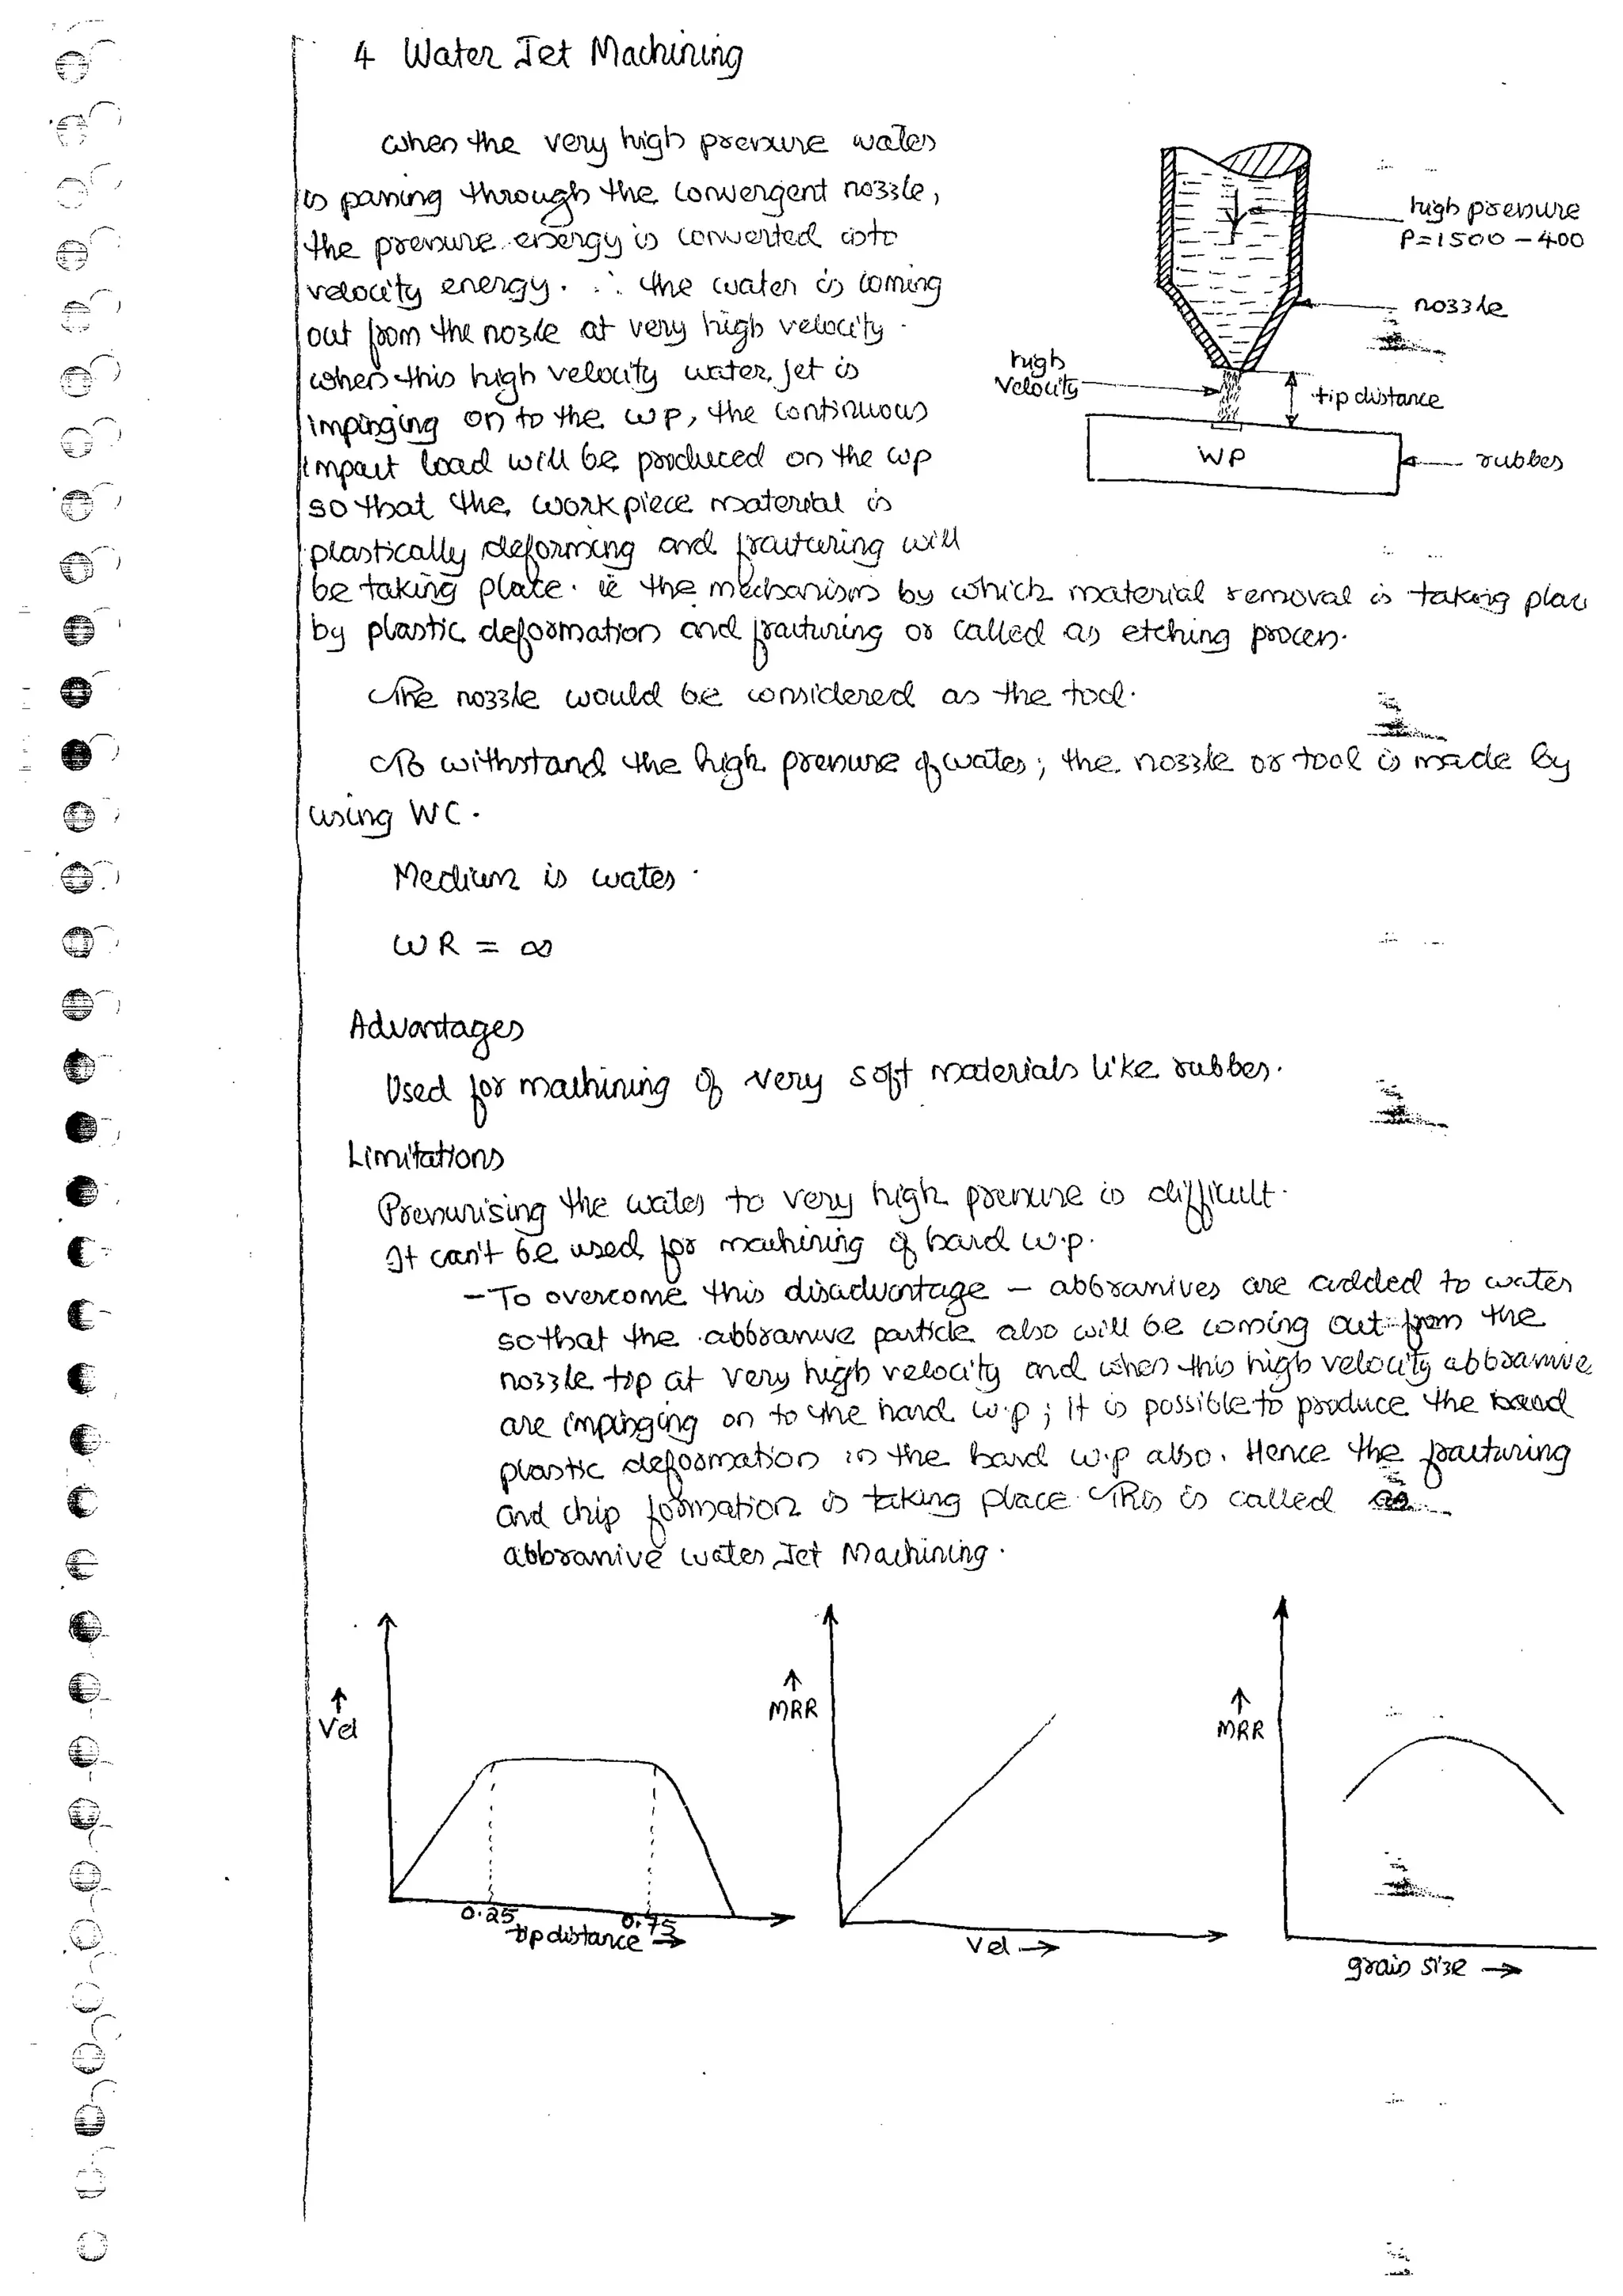 4 Water Jet Machining
when the very high pressure water
is passing through the convergent nozzle,
the pressure energy is converted into
velocity energy. ∴ the water is coming
out from the nozle at very high velocity.
when this high velocity water jet is
impinging on to the wp, the continuous
impact load will be produced on the wp
so that the workpiece material is
plastically deforming and fracturing will
be taking place. ie the mechanism by which material removal is taking plac
by plastic deformation and fracturing or called as etching process.
The nozzle would be considered as the tool.
To withstand the high pressure of water; the nozzle or tool is made by
using WC.
Medium is water.
WR = ∞
high pressure
P=1500 – 400
nozzle
high
velocity
tip distance
WP
rubber
Advantages
Used for machining of very soft materials like rubber.
Limitations
Pressurising the water to very high pressure is difficult.
It can't be used for machining of hard w.p.
– To overcome this disadvantage – abbrassives are added to water
so that the abbrassive particle also will be coming out from the
nozzle tip at very high velocity and when this high velocity abbrassive
are impinging on to the hard w.p; it is possible to produce the
plastic deformation in the hard w.p also. Hence the fracturing
and chip formation is taking place. This is called as
abbrassive water Jet Machining.
↑
Vel
0.25
0.75
tip distance →
↑
MRR
Vel →
↑
MRR
grain size →